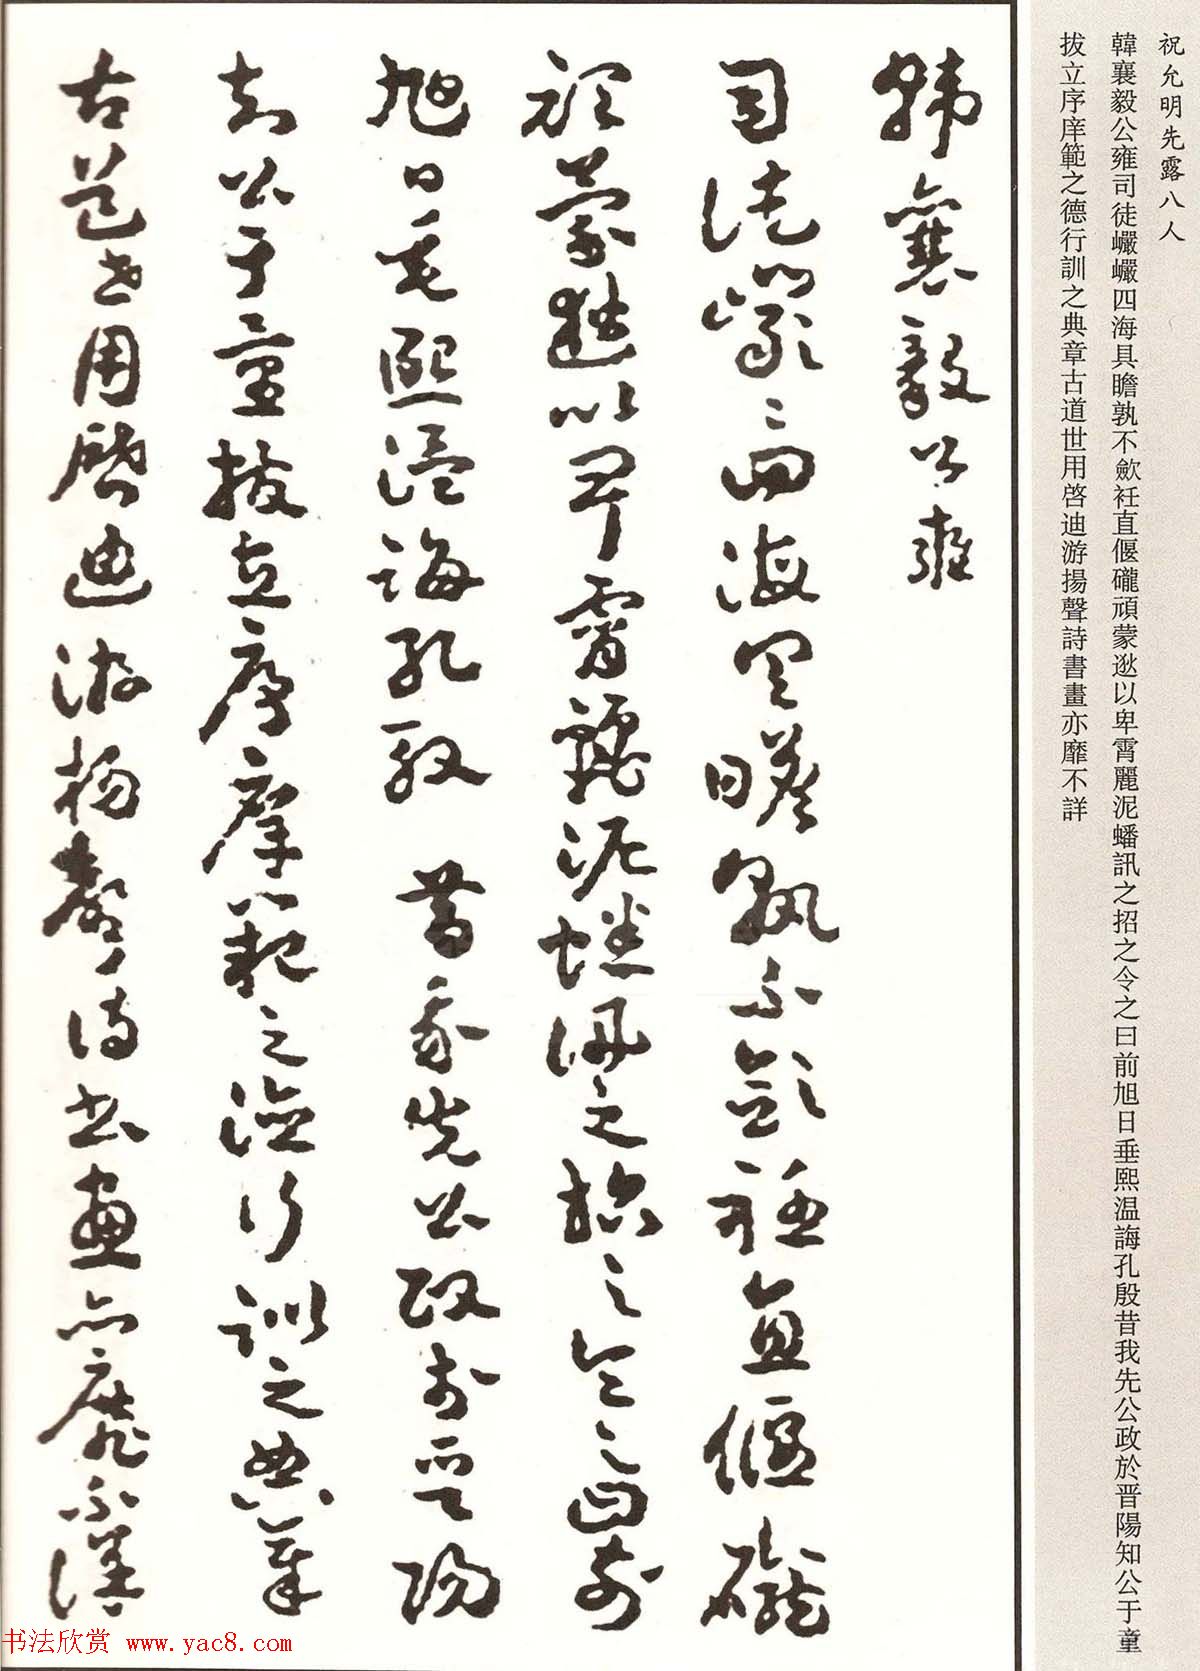 祝允明先露八人
韓襄毅公雍司徒巖巖四海具瞻孰不斂衽直偃礲頑蒙逖以卑霄麗泥蟠訊之招之令之曰前旭日垂熙温誨孔殷昔我先公政於晋陽知公于童
拔立序庠範之德行訓之典章古道世用啓迪游揚聲詩書畫亦靡不詳
韓襄毅公雍
司徒巖〻四海具瞻孰不斂衽直偃礲
頑蒙逖以卑霄麗泥蟠訊之招之令之曰前
旭日垂熙温誨孔殷昔我先公政於晋陽
知公于童拔立序庠範之德行訓之典章
古道世用啓迪游揚聲詩書畫亦靡不詳
书法欣赏 www.yac8.com